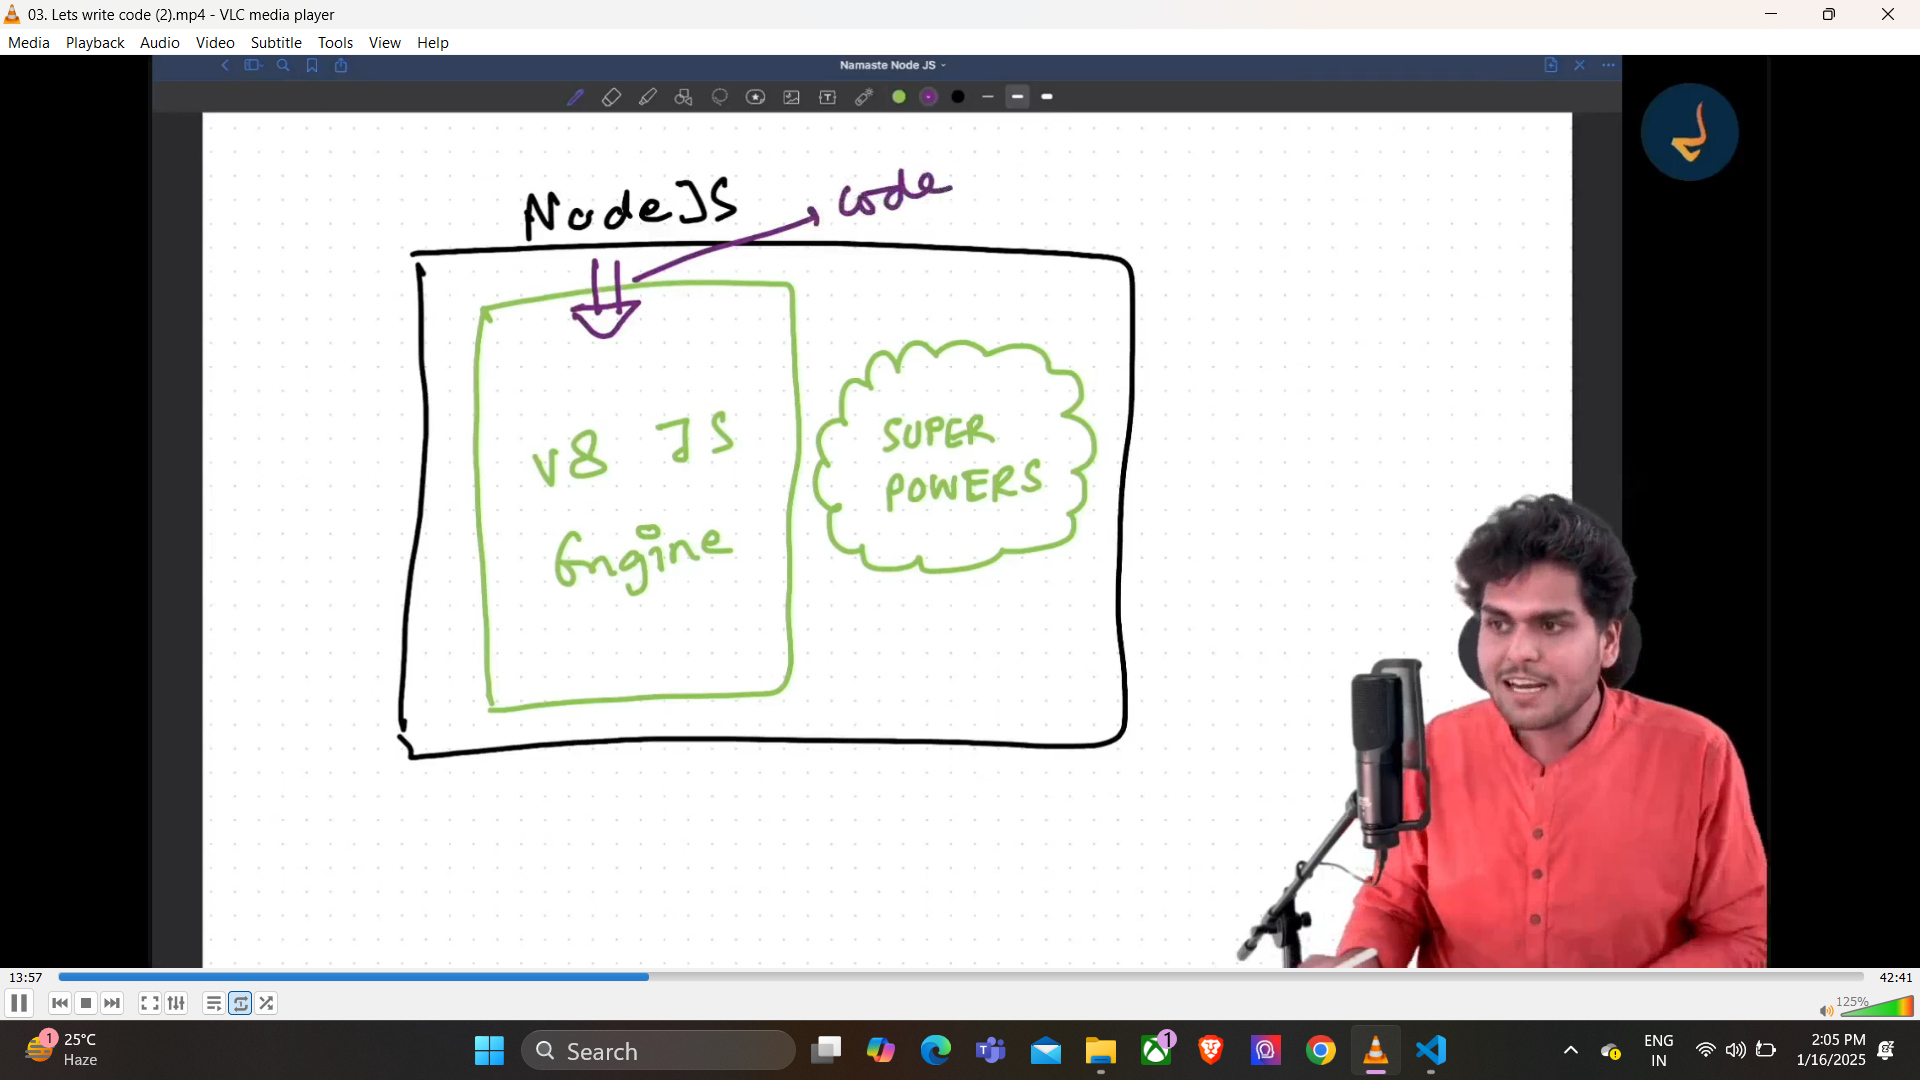 03. Lets write code (2).mp4 - VLC media player
Media Playback Audio Video Subtitle Tools View Help
Namaste Node JS
NodeJS
code
v8 JS
Engine
SUPER
POWERS
13:57
42:41
125%
1
25°C
Haze
Search
1
ENG
IN
2:05 PM
1/16/2025